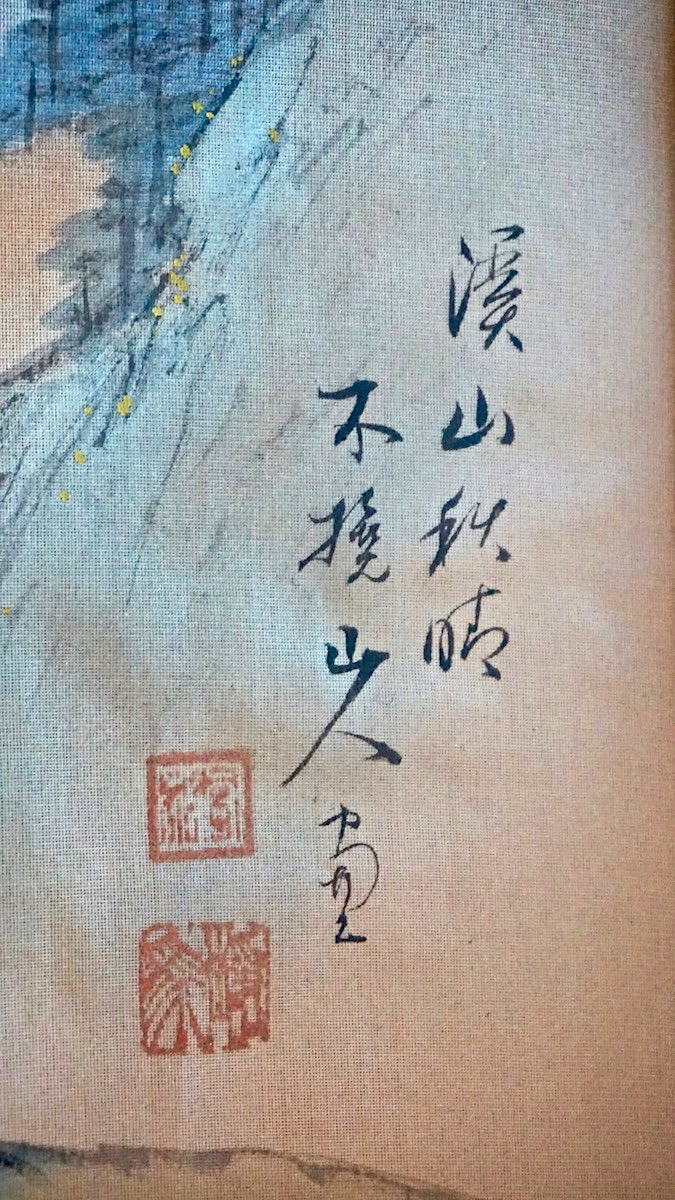 溪山秋晴
不撓山人画